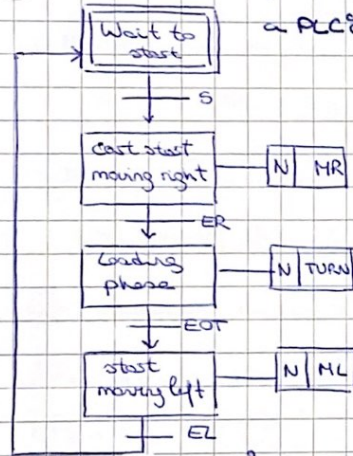 a PLC
Wait to
start
S
Cart start
moving right
N MR
ER
Loading
phase
N TURN
EOT
start
moving left
N ML
EL